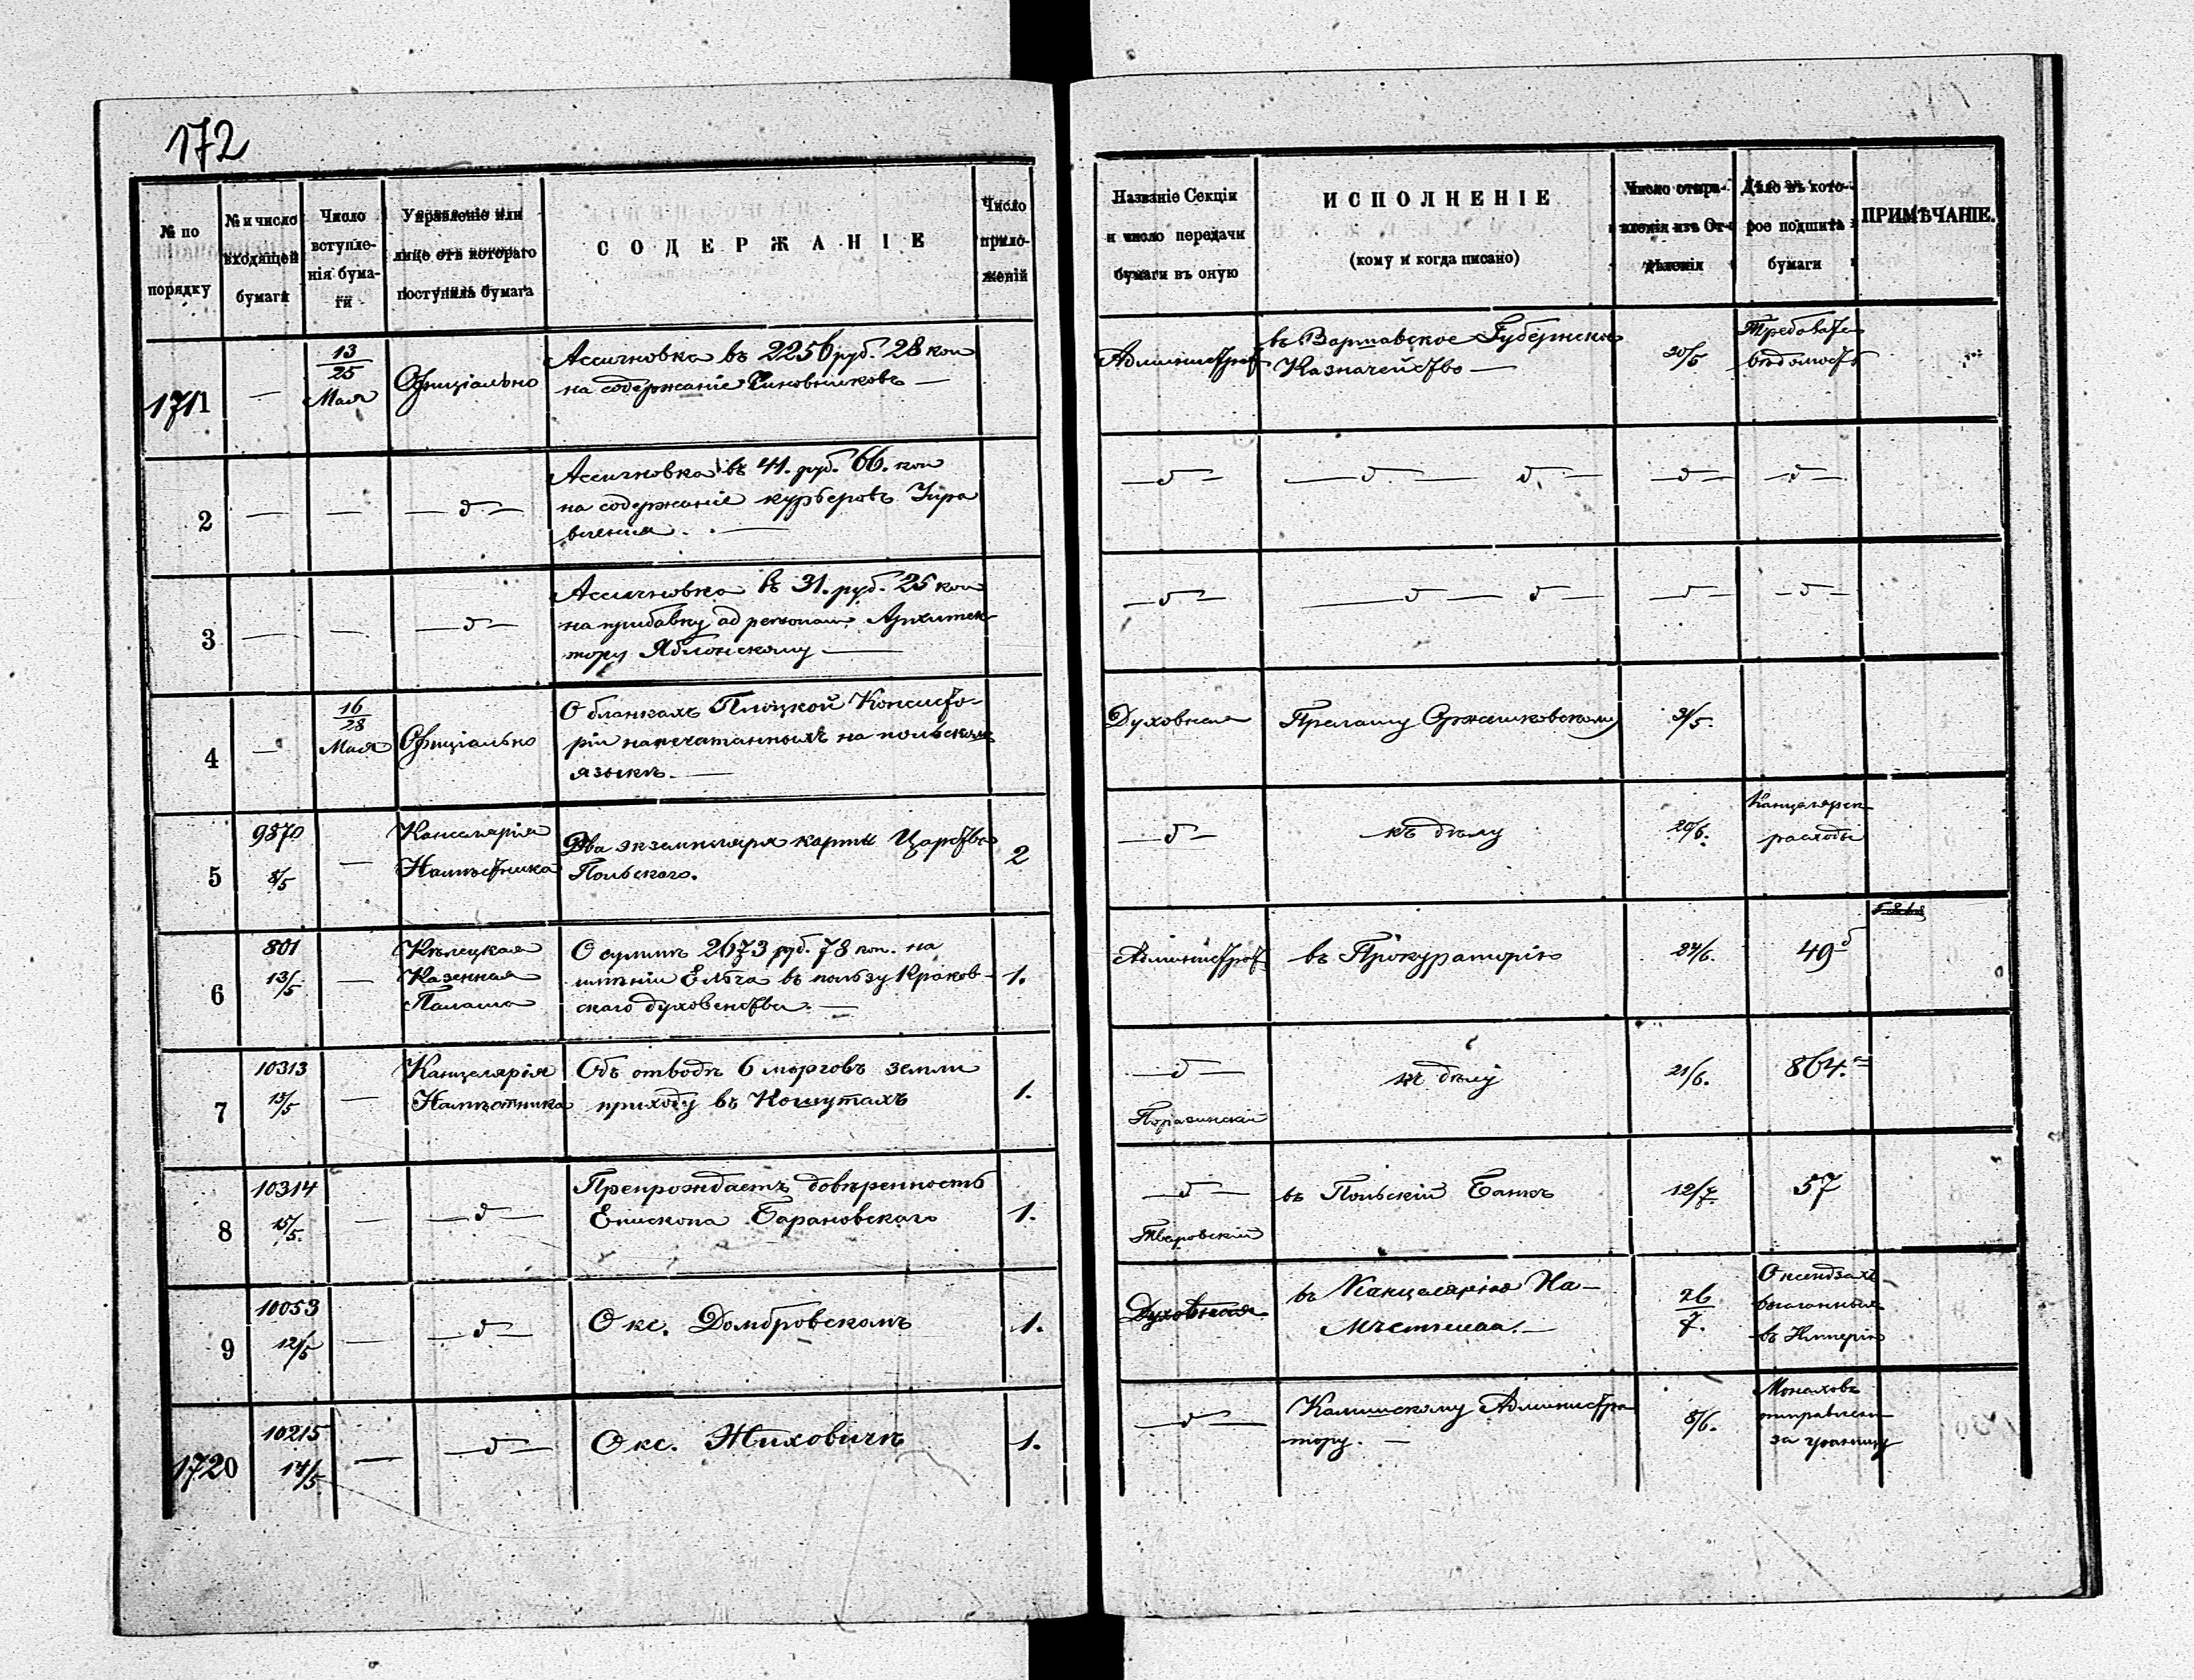 172
№ по порядку
№ и число входящей бумаги
Число вступле-нія бума-ги
Управленіе или лице отъ котораго поступила бумага
СОДЕРЖАНІЕ
Число прило-женій
Названіе Секціи и число передачи бумаги въ оную
ИСПОЛНЕНІЕ
(кому и когда писано)
Число отпра-вленія изъ От-дѣленія
Дѣло въ кото-рое подшита бумаги
ПРИМѢЧАНІЕ.
1711
—
13/25 Мая
Офиціально
Ассигновка въ 2256 руб. 28 коп
на содержаніе Чиновниковъ —
Администрат
въ Варшавское Губернское
Казначейство —
20/5
Требоват
вѣдомост
2
—
—
— д —
Ассигновка въ 41. руб. 66. коп
на содержаніе курьеровъ Упра
вленія. . —
— д —
— д — д. —
— д —
— д —
3
—
—
— д —
Ассигновка въ 31. руб. 25 коп
на прибавку ad personam Архитек
тору Яблонскому —
— д —
— д — д —
— д —
— д —
4
—
16/28 Мая
Офиціально
О бланкахъ Плоцкой Консисто-
ріи напечатанныхъ на польскомъ
языкѣ. —
Духовная
Прелату Оржешковскому
31/5.
5
9870
8/5
—
Канцелярія
Намѣстника
Два экземпляра карты Царства
Польскаго.
2
— д —
къ дѣлу
20/6.
Канцелярск
расходы
6
801
13/5
—
Кѣлецкая
Казенная
Палата
О суммѣ 2673 руб. 78 коп. на
имѣніи Ельча въ пользу Краков-
скаго духовенства. —
1.
Администрат
въ Прокураторію
24/6.
49
7
10313
15/5
—
Канцелярія
Намѣстника
Объ отводѣ 6 морговъ земли
приходу въ Кошутахъ
1.
— д —
Поразинскій
къ дѣлу
21/6.
864.
8
10314
15/5.
—
— д —
Препрождаетъ довѣренность
Епископа Барановскаго
1.
— д —
Тваровскій
въ Польскій Банкъ
12/7.
57
9
10053
12/5
—
— д —
О кс. Домбровскомъ
1.
Духовная
въ Канцелярію На-
мѣстника. —
26/7.
О ксендзахъ
высланныхъ
въ Имперію
1720
10215
14/5
—
— д —
О кс. Жиховичѣ
1.
— д —
Калишскому Администра
тору. —
8/6.
Монаховъ
отправлен
за границу